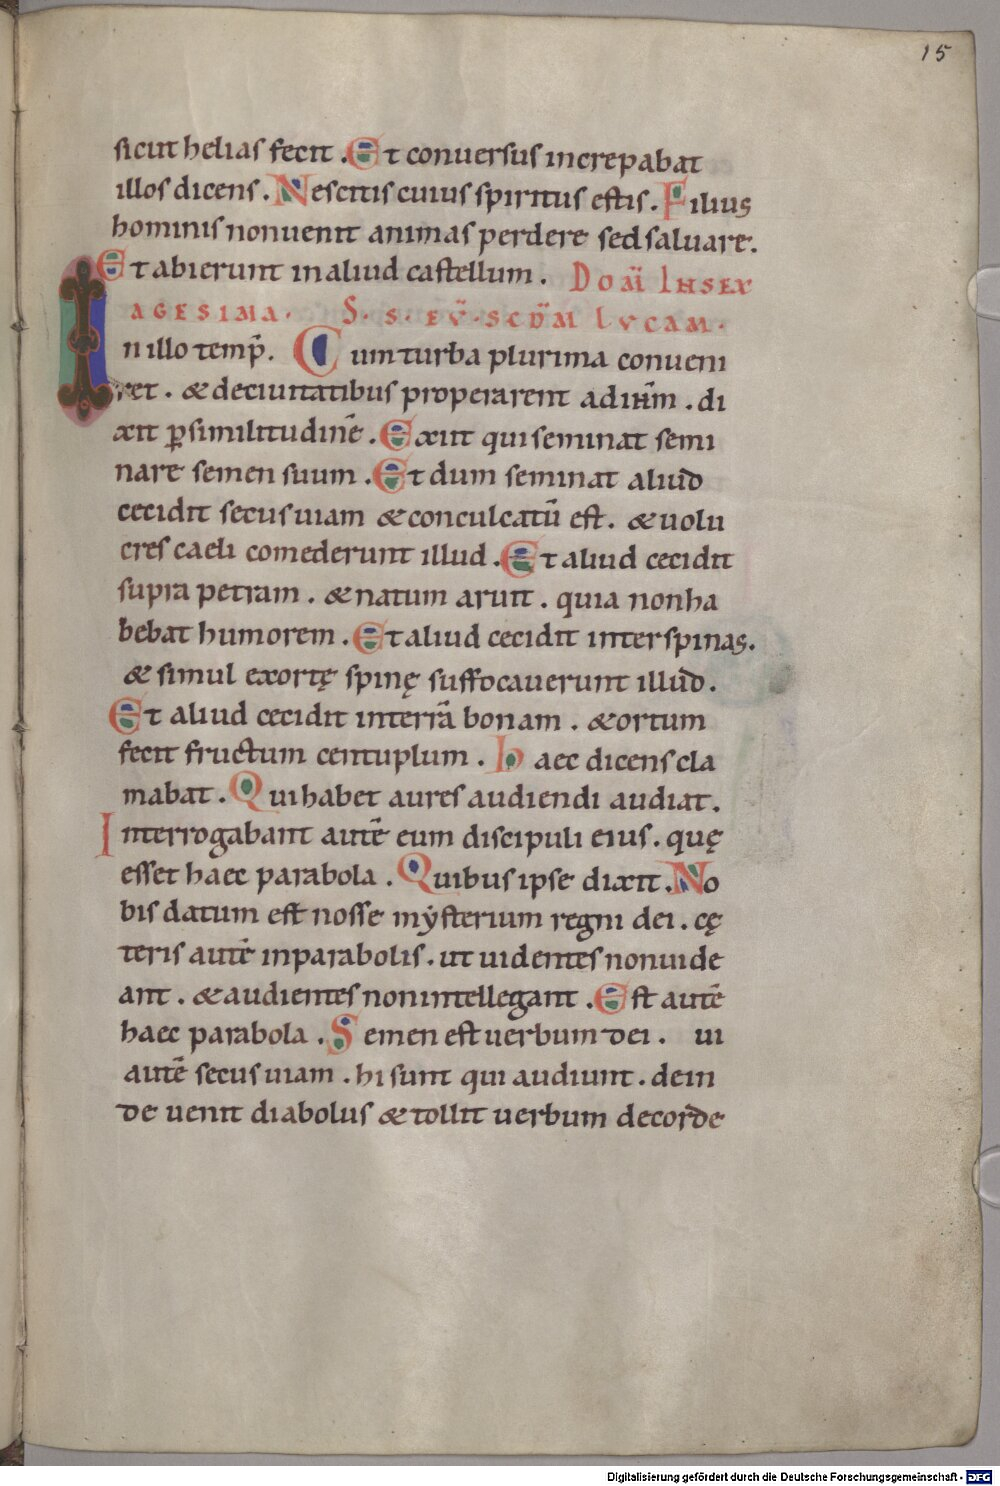 15
sicut helias fecit . Et conuersus increpabat
illos dicens . Nescitis cuius spiritus estis . Filius
hominis non uenit animas perdere sed saluare .
Et abierunt in aliud castellum . DOM̄ IN SEX
AGESIMA . S . S . EV̄ . SCD̄M LVCAM .
In illo temp̄ . Cum turba plurima conueni
ret . & de ciuitatibus properarent ad ih̄m . di
xit ꝑ similitudinē . Exiit qui seminat semi
nare semen suum . Et dum seminat aliud
cecidit secus uiam & conculcatū est . & uolu
cres caeli comederunt illud . Et aliud cecidit
supra petram . & natum aruit . quia non ha
bebat humorem . Et aliud cecidit inter spinas .
& simul exortę spinę suffocauerunt illud .
Et aliud cecidit in terrā bonam . & ortum
fecit fructum centuplum . Haec dicens cla
mabat . Qui habet aures audiendi audiat .
Interrogabant autē eum discipuli eius . quę
esset haec parabola . Quibus ipse dixit . No
bis datum est nosse mẏsterium regni dei . cę
teris autē in parabolis . ut uidentes non uide
ant . & audientes non intellegant . Est autē
haec parabola . Semen est uerbum dei . ui
autē secus uiam . hi sunt qui audiunt . dein
de uenit diabolus & tollit uerbum de corde
Digitalisierung gefördert durch die Deutsche Forschungsgemeinschaft - DFG